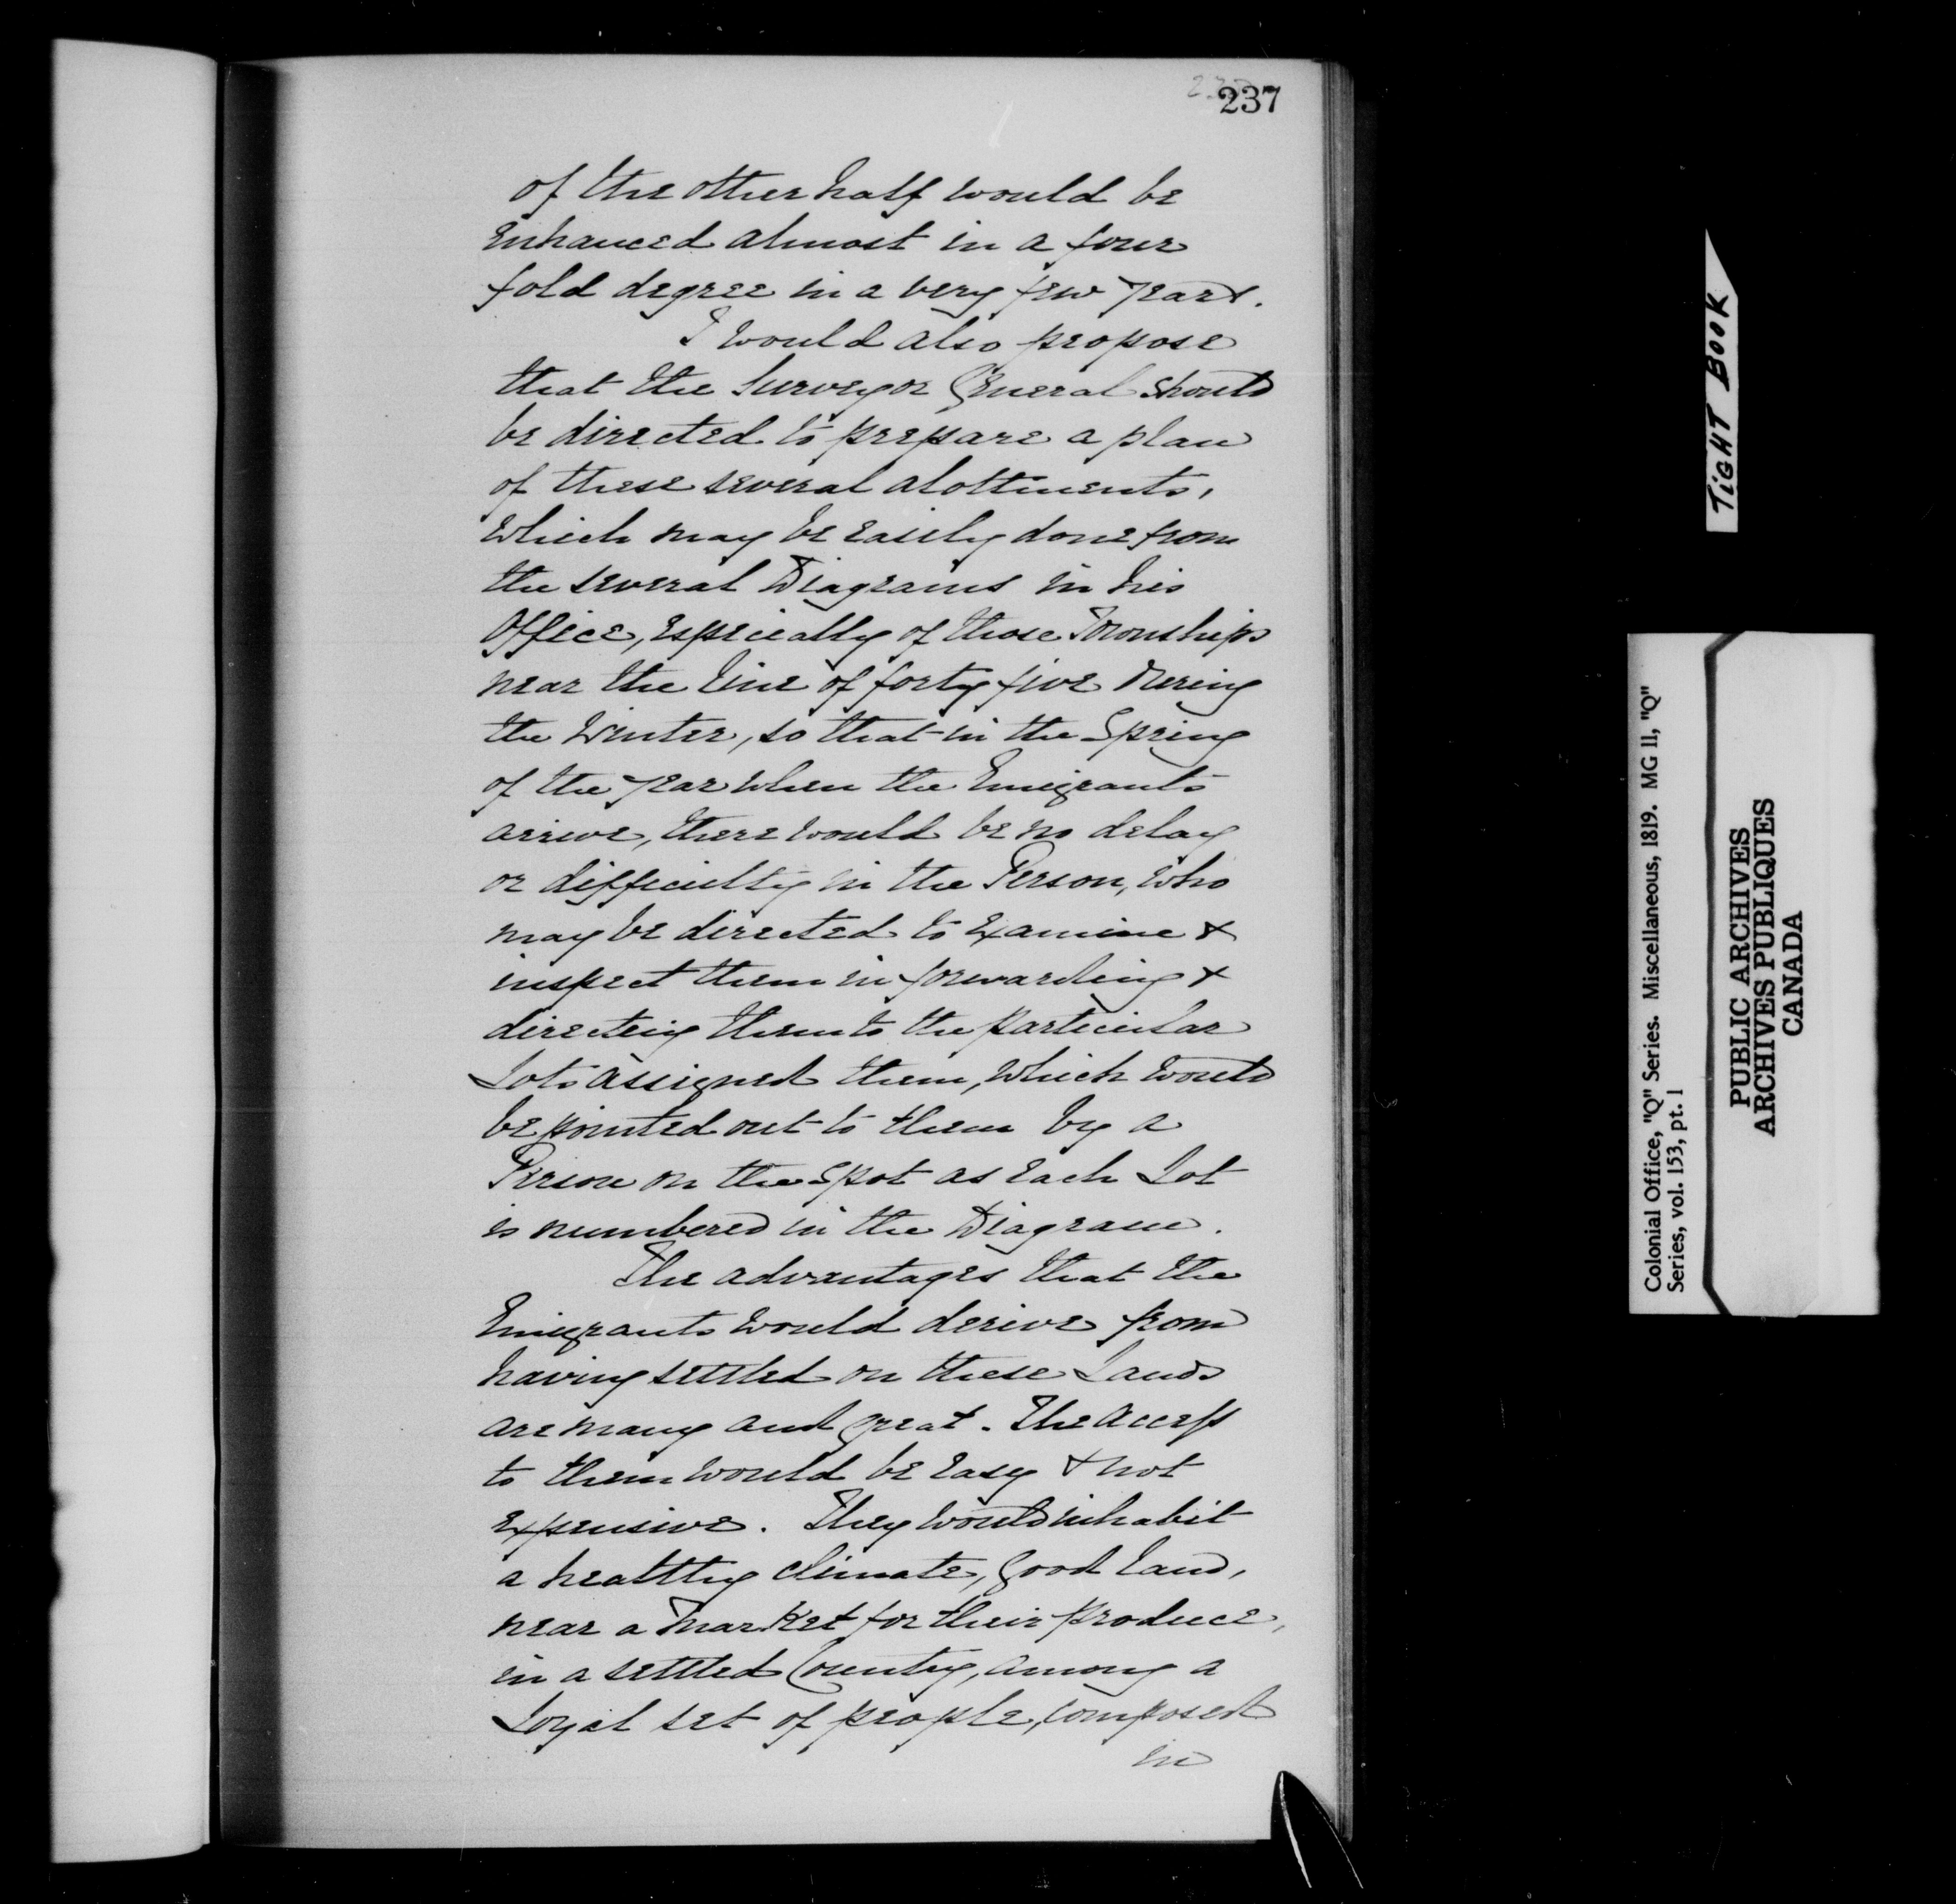 237
of the other half would be
enhanced almost in a four
fold degree in a very few years.
I would also propose
that the Surveyor General should
be directed to prepare a plan
of these several alottments,
which may be easily done from
the several Diagrams in his
Office, especially of those Townships
near the line of forty five during
the Winter, so that in the Spring
of the year when the Emigrants
arrive, there would be no delay
or difficulty in the Person, who
may be directed to examine &
inspect them in forwarding &
directing them to the particular
Lots assigned them, which would
be pointed out to them by a
Person on the Spot as each Lot
is numbered in the Diagram.
The advantages that the
Emigrants would derive from
having settled on these Lands
are many and great. The access
to them would be easy & not
expensive. They would inhabit
a healthy climate, good land,
near a market for their produce,
in a settled Country, among a
Loyal set of people, composed
in
TIGHT BOOK
Colonial Office, "Q" Series. Miscellaneous, 1819. MG 11, "Q"
Series, vol. 153, pt. 1
PUBLIC ARCHIVES
ARCHIVES PUBLIQUES
CANADA